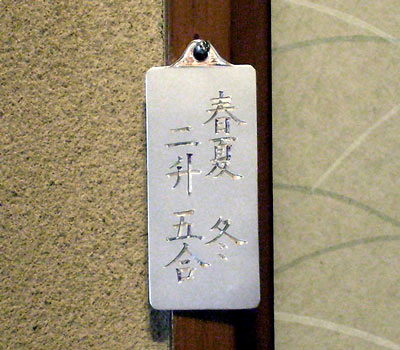 春夏 冬
二升 五合